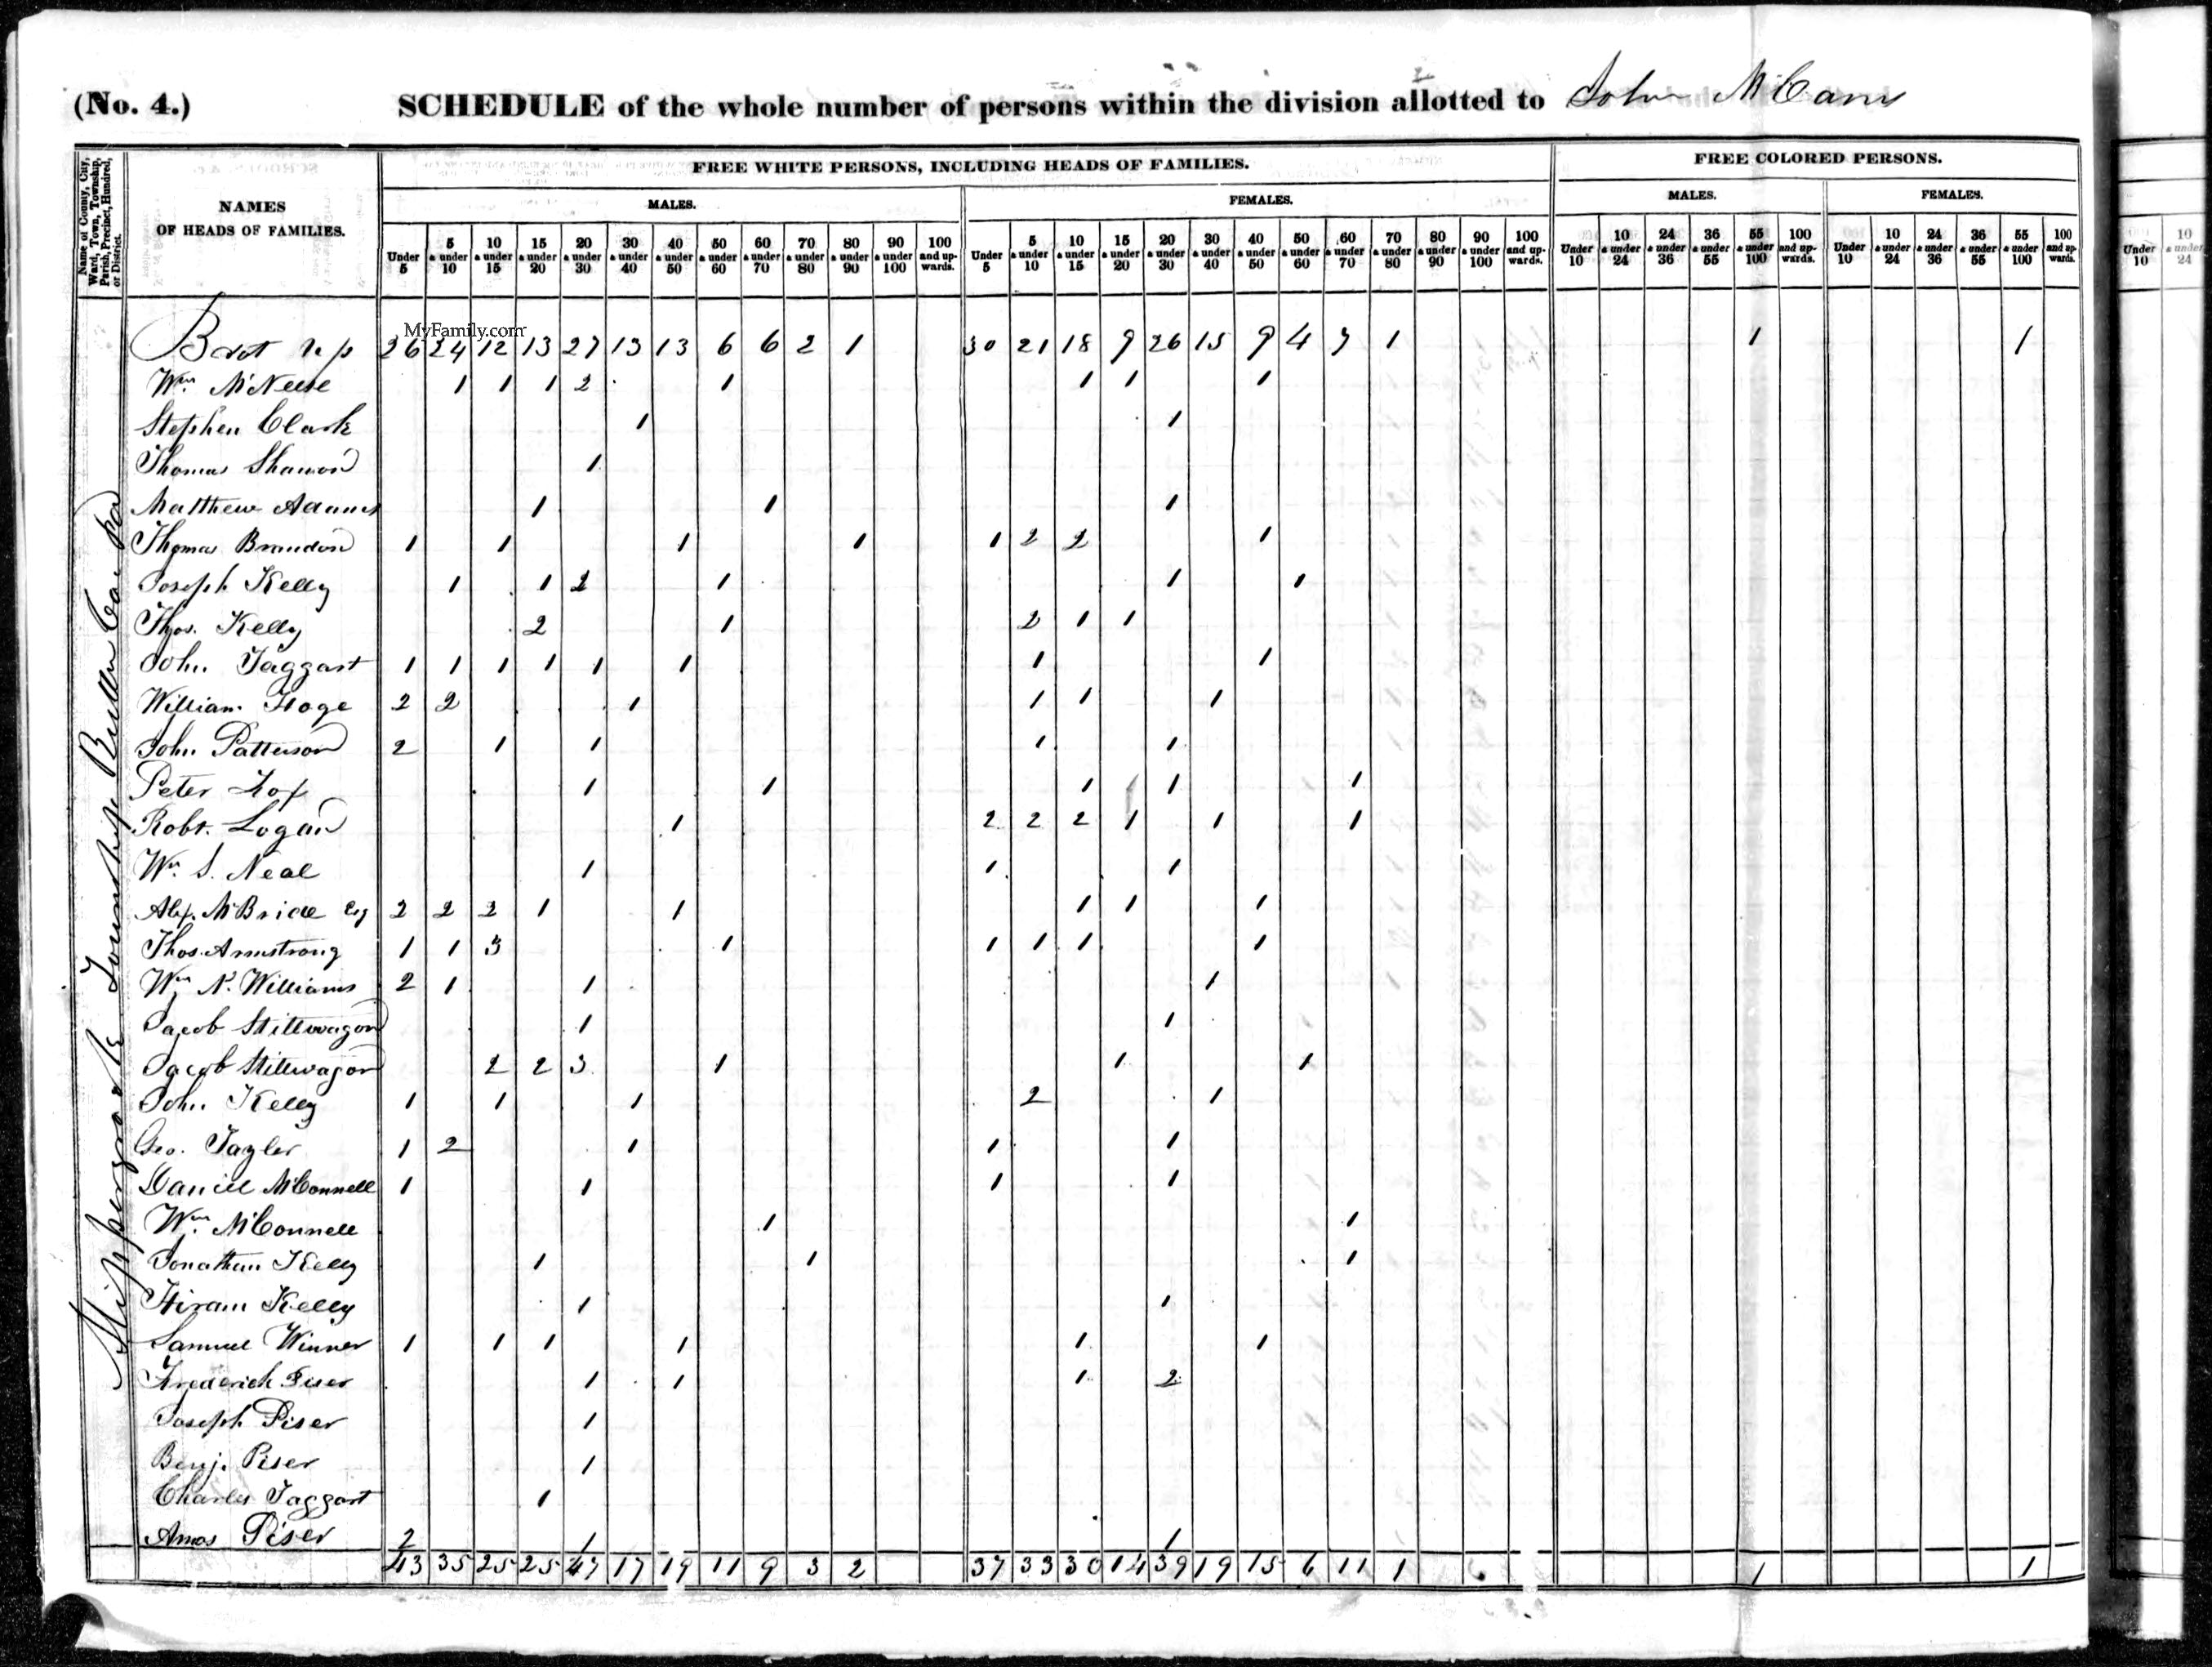 (No. 4.) SCHEDULE of the whole number of persons within the division allotted to John McCann
Name of County, City, Ward, Town, Township, Parish, Precinct, Hundred, or District.
NAMES OF HEADS OF FAMILIES.
FREE WHITE PERSONS, INCLUDING HEADS OF FAMILIES. FREE COLORED PERSONS.
MALES. FEMALES. MALES. FEMALES.
Under 5 5 & under 10 10 & under 15 15 & under 20 20 & under 30 30 & under 40 40 & under 50 50 & under 60 60 & under 70 70 & under 80 80 & under 90 90 & under 100 100 and upwards. Under 5 5 & under 10 10 & under 15 15 & under 20 20 & under 30 30 & under 40 40 & under 50 50 & under 60 60 & under 70 70 & under 80 80 & under 90 90 & under 100 100 and upwards. Under 10 10 & under 24 24 & under 36 36 & under 55 55 & under 100 100 and upwards. Under 10 10 & under 24 24 & under 36 36 & under 55 55 & under 100 100 and upwards. Under 10 10 & under 24
MyFamily.com
Slipperyrock Township Butler Co. Pa
Brot up 26 24 12 13 27 13 13 6 6 2 1 30 21 18 9 26 15 9 4 7 1 1 1
Wm. McNeese 1 1 1 2 1 1 1 1
Stephen Clark 1 1
Thomas Shannon 1
Matthew Adams 1 1 1
Thomas Brandon 1 1 1 1 1 2 2 1
Joseph Kelly 1 1 2 1 1 1
Thos. Kelly 2 1 2 1 1
John Taggart 1 1 1 1 1 1 1 1
William Hoge 2 2 1 1 1 1
John Patterson 2 1 1 1 1
Peter 1 1 1 1 1 1
Robt. Logan 1 2 2 2 1 1 1
Wm. S. Neal 1 1 1
Alex. McBride Esq 2 2 2 1 1 1 1 1
Thos. Armstrong 1 1 3 1 1 1 1 1
Wm. N. Williams 2 1 1 1
Jacob Stillwagon 1 1
Jacob Stillwagon 2 2 3 1 1 1
John Kelly 1 1 1 2 1
Geo. Tayler 1 2 1 1 1
Daniel McConnell 1 1 1 1
Wm. McConnell 1 1
Jonathan Kelly 1 1 1
Hiram Kelly 1 1
Samuel Winner 1 1 1 1 1 1
Frederick Piser 1 1 1 2
Joseph Piser 1
Benj. Piser 1
Charles Taggart 1
Amos Piser 2 1 1
43 35 25 25 47 17 19 11 9 3 2 37 33 30 14 39 19 15 6 11 1 1 1